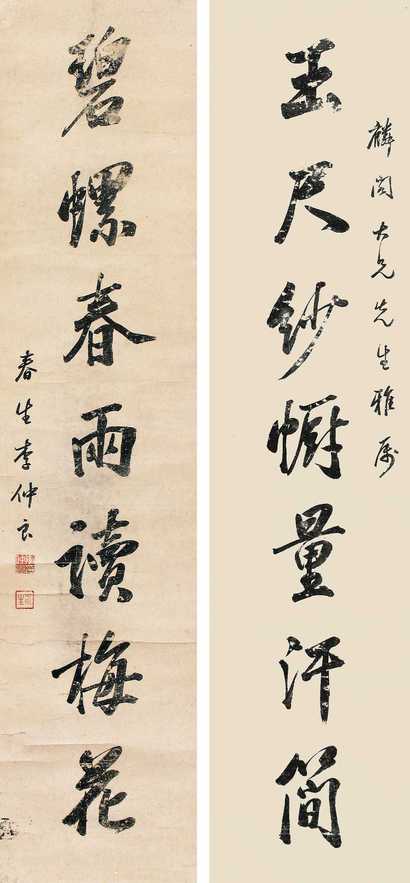 麟閣大兄先生雅属
玉尺紗幮量汗簡
碧螺春雨讀梅花
春生李仲良